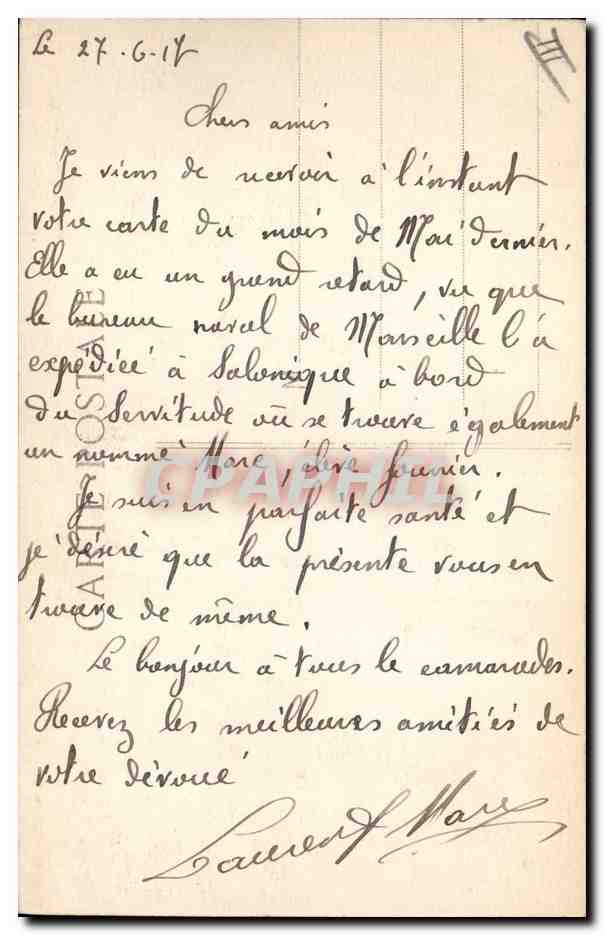 Le 27-6-17
III
Chers amis
Je viens de recevoir à l'instant
votre carte du mois de Mai dernier.
Elle a eu un grand retard, vu que
le bureau naval de Marseille l'à
expédiée à Salonique à bord
du Servitude où se trouve également
un nommé Marc, élève fourrier.
Je suis en parfaite santé et
je désire que la présente vous en
trouve de même.
Le bonjour à tous le camarades.
Recevez les meilleures amitiés de
votre dévoué
Laurent Marc
CARTE POSTALE
CPAPHIL